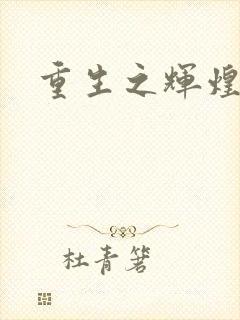 重生之辉煌
杜青箬